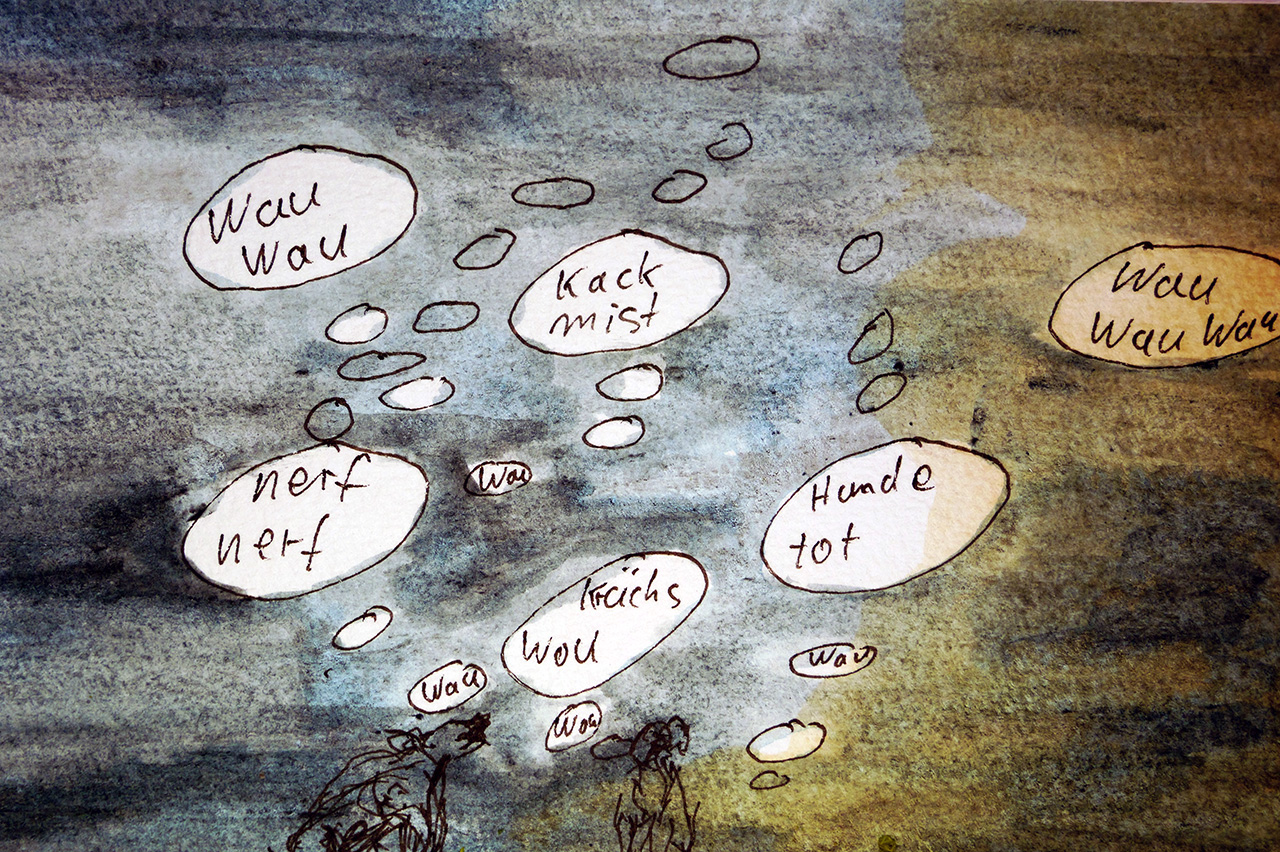 Wau
Wau
Kack
mist
Wau
Wau Wau
nerf
nerf
Wau
Hunde
tot
krächs
Wou
Wau
Wau
Wou